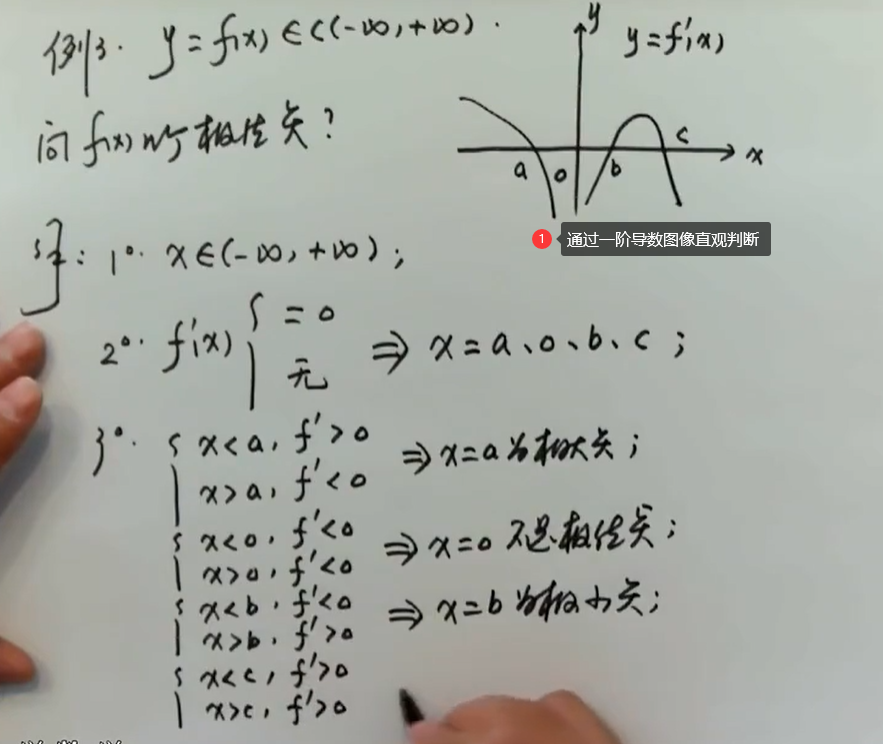 例3. y=f(x)∈C(-∞,+∞).
y
y=f'(x)
问f(x)的极值点?
a
0
b
c
x
1
通过一阶导数图像直观判断
解: 1°. x∈(-∞,+∞);
2°. f'(x) { =0
无
⇒ x=a、0、b、c;
3°. { x<a, f'>0
x>a, f'<0
⇒ x=a为极大点;
{ x<0, f'<0
x>0, f'<0
⇒ x=0不是极值点;
{ x<b, f'<0
x>b, f'>0
⇒ x=b为极小点;
{ x<c, f'>0
x>c, f'>0